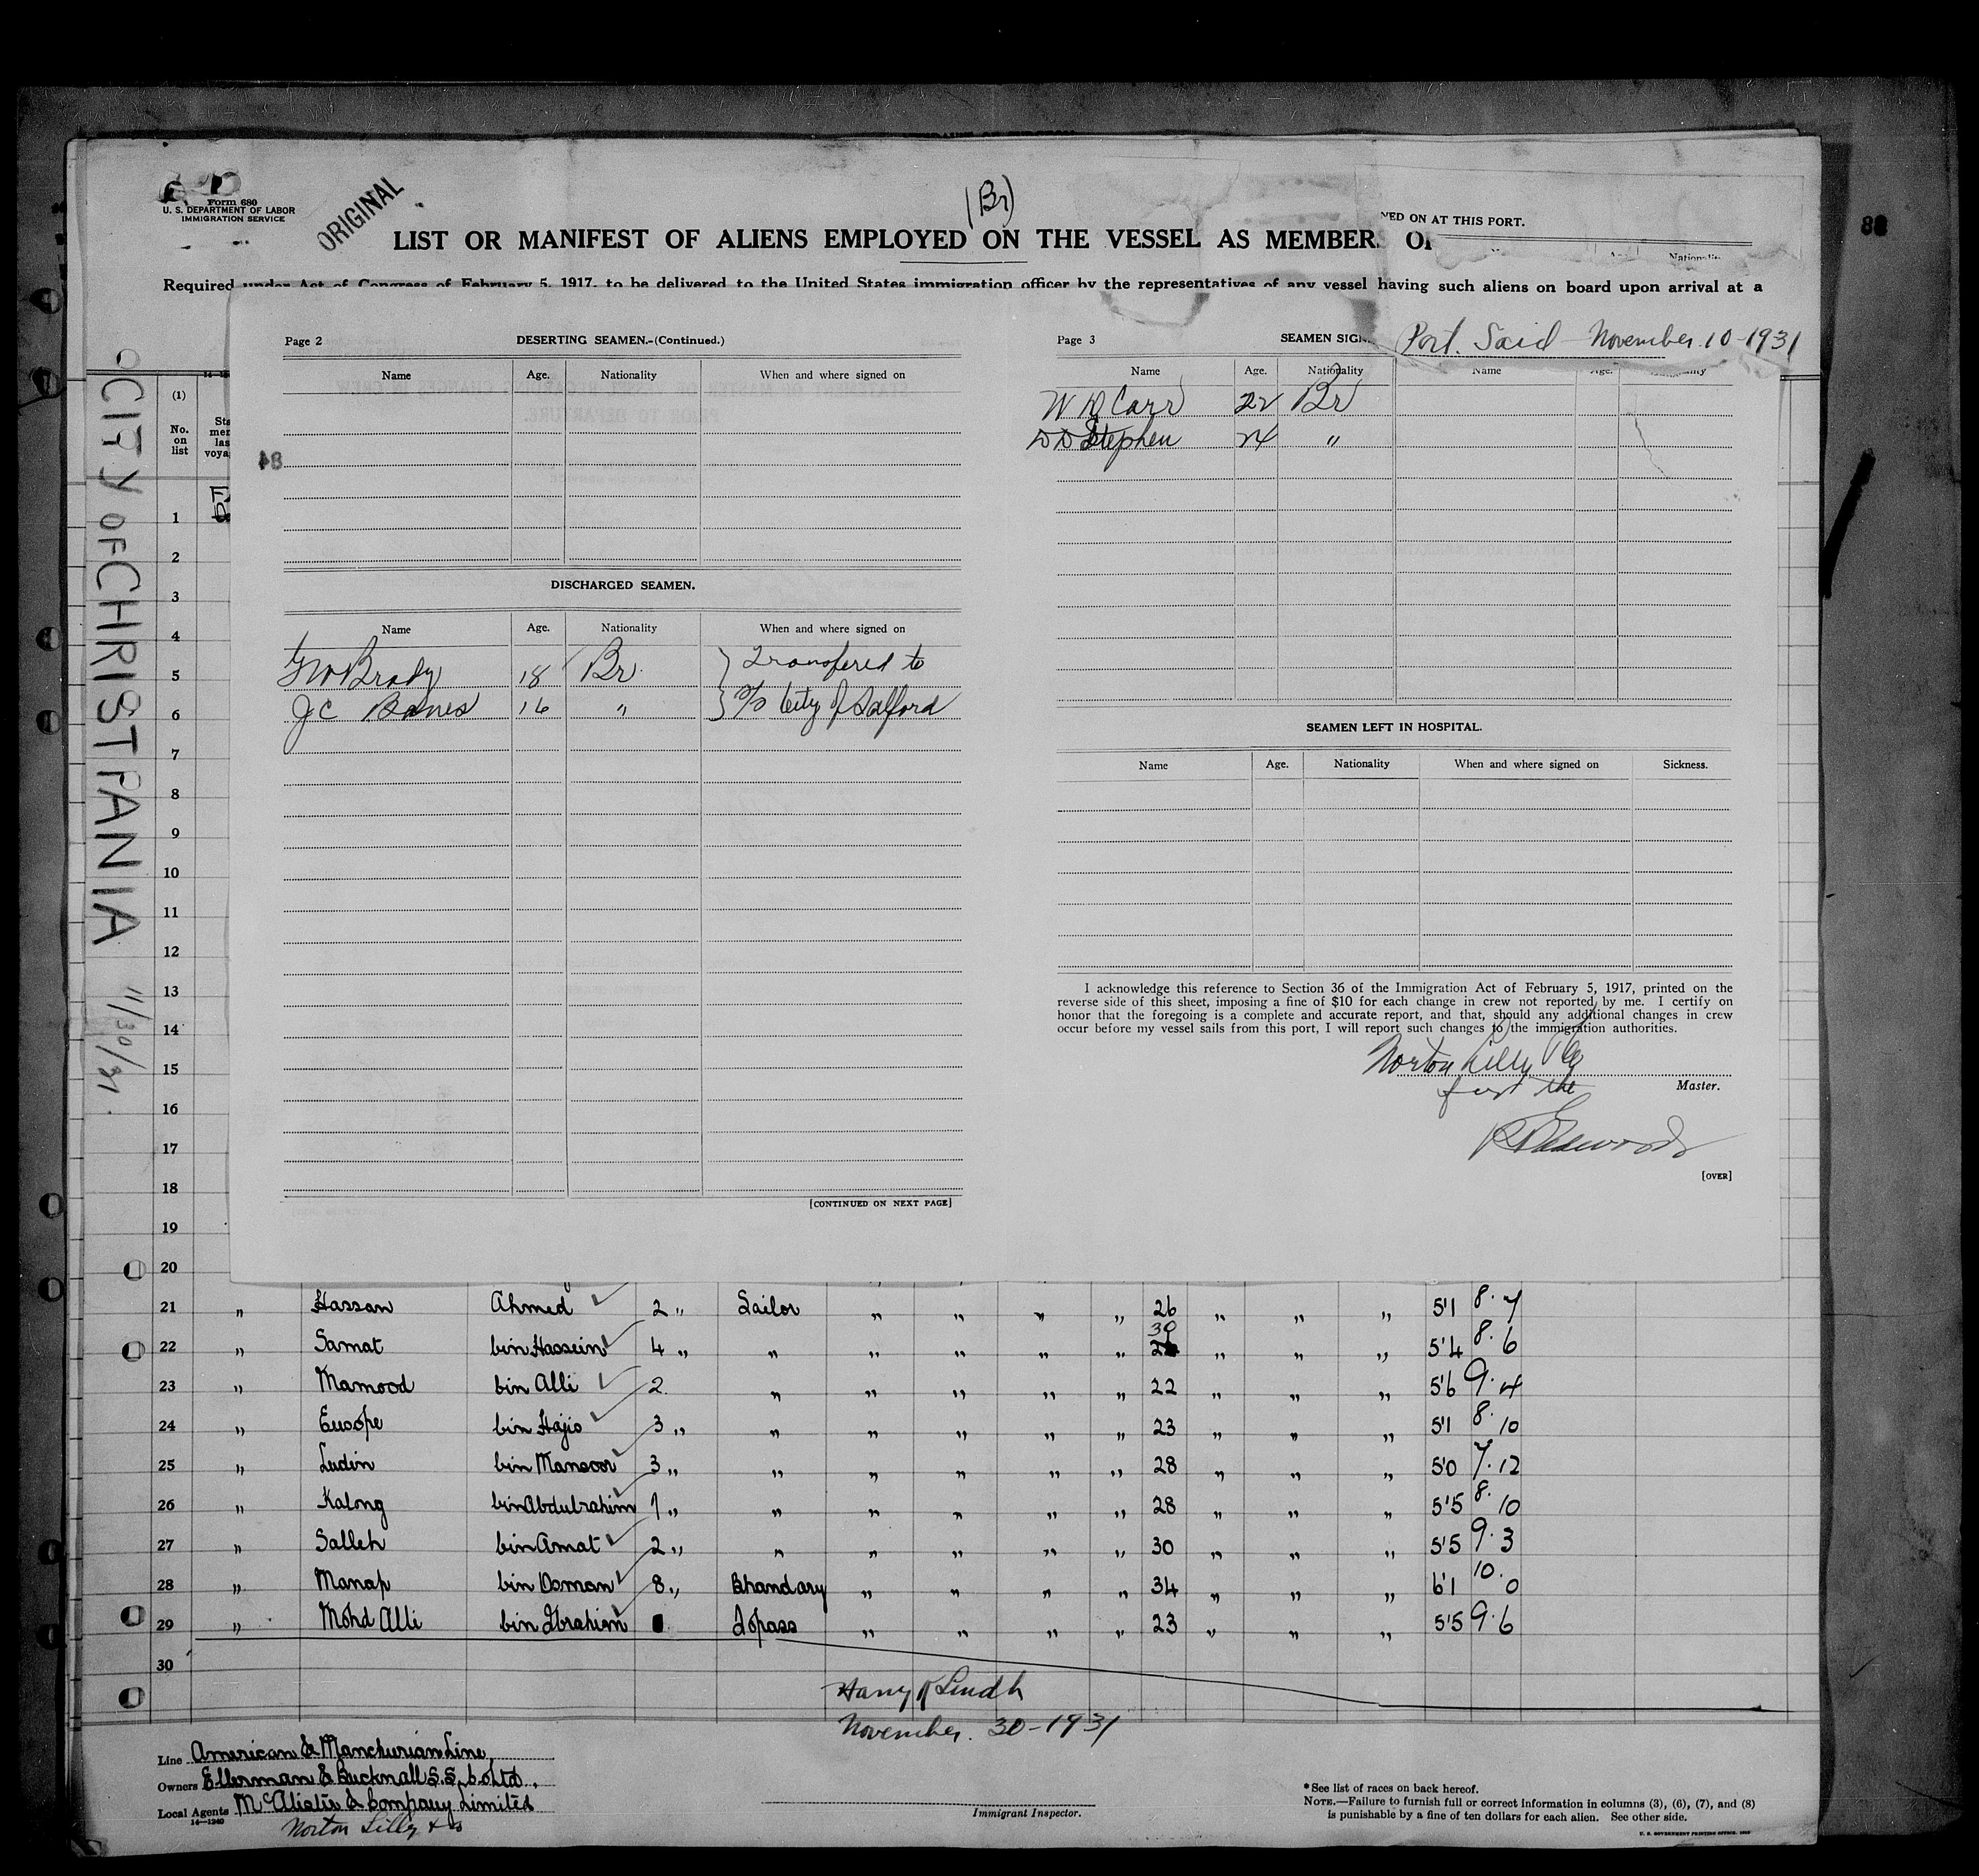 Form 680
U. S. DEPARTMENT OF LABOR
IMMIGRATION SERVICE
ORIGINAL
(Br)
LIST OR MANIFEST OF ALIENS EMPLOYED ON THE VESSEL AS MEMBER
ED ON AT THIS PORT.
Required under Act of Congress of February 5, 1917, to be delivered to the United States immigration officer by the representatives of any vessel having such aliens on board upon arrival at a
88
CITY OF CHRISTPANIA 11/30/31.
(1)
No.
on
list
1
2
3
4
5
6
7
8
9
10
11
12
13
14
15
16
17
18
19
20
Page 2
DESERTING SEAMEN.-(Continued.)
Name Age. Nationality When and where signed on
84
DISCHARGED SEAMEN.
Name Age. Nationality When and where signed on
Brady 18 Br. Transfered to
J C 16 " S/S City of Salford
[CONTINUED ON NEXT PAGE]
Page 3
SEAMEN SIGN
Port. Said November 10-1931
Name Age. Nationality Name Age.
W Carr 22 Br
D D Stephen 24 "
SEAMEN LEFT IN HOSPITAL.
Name Age. Nationality When and where signed on Sickness.
I acknowledge this reference to Section 36 of the Immigration Act of February 5, 1917, printed on the
reverse side of this sheet, imposing a fine of $10 for each change in crew not reported by me. I certify on
honor that the foregoing is a complete and accurate report, and that, should any additional changes in crew
occur before my vessel sails from this port, I will report such changes to the immigration authorities.
Norton Lilly
for the Master.
[OVER]
21 " Hassan Ahmed 2 " Sailor " " " " 26 " " " 5'1 8.7
22 " Samat bin Hassein 4 " " " " " " 39 " " " 5'4 8.6
23 " Mamood bin Alli 2. " " " " " 22 " " " 5'6 9.4
24 " Eusope bin Hajio 3 " " " " " " 23 " " " 5'1 8.10
25 " Ludin bin Mansoor 3 " " " " " " 28 " " " 5'0 7.12
26 " Kalong bin Abdulrahim 1 " " " " " " 28 " " " 5'5 8.10
27 " Salleh bin Amat 2 " " " " " " 30 " " " 5'5 9.3
28 " Manap bin Osman 8 " Bhandary " " " " 34 " " " 6'1 10.0
29 " Mohd Alli bin Ibrahim Topass " " " " 23 " " " 5'5 9.6
30
Harry Lindh
November. 30-1931
Line American & Manchurian Line
Owners Ellerman & Bucknall S.S. Co Ltd.
Local Agents McAlister & Company Limited
14—1240
Norton Lilly & Co
Immigrant Inspector.
*See list of races on back hereof.
NOTE.—Failure to furnish full or correct information in columns (3), (6), (7), and (8)
is punishable by a fine of ten dollars for each alien. See other side.